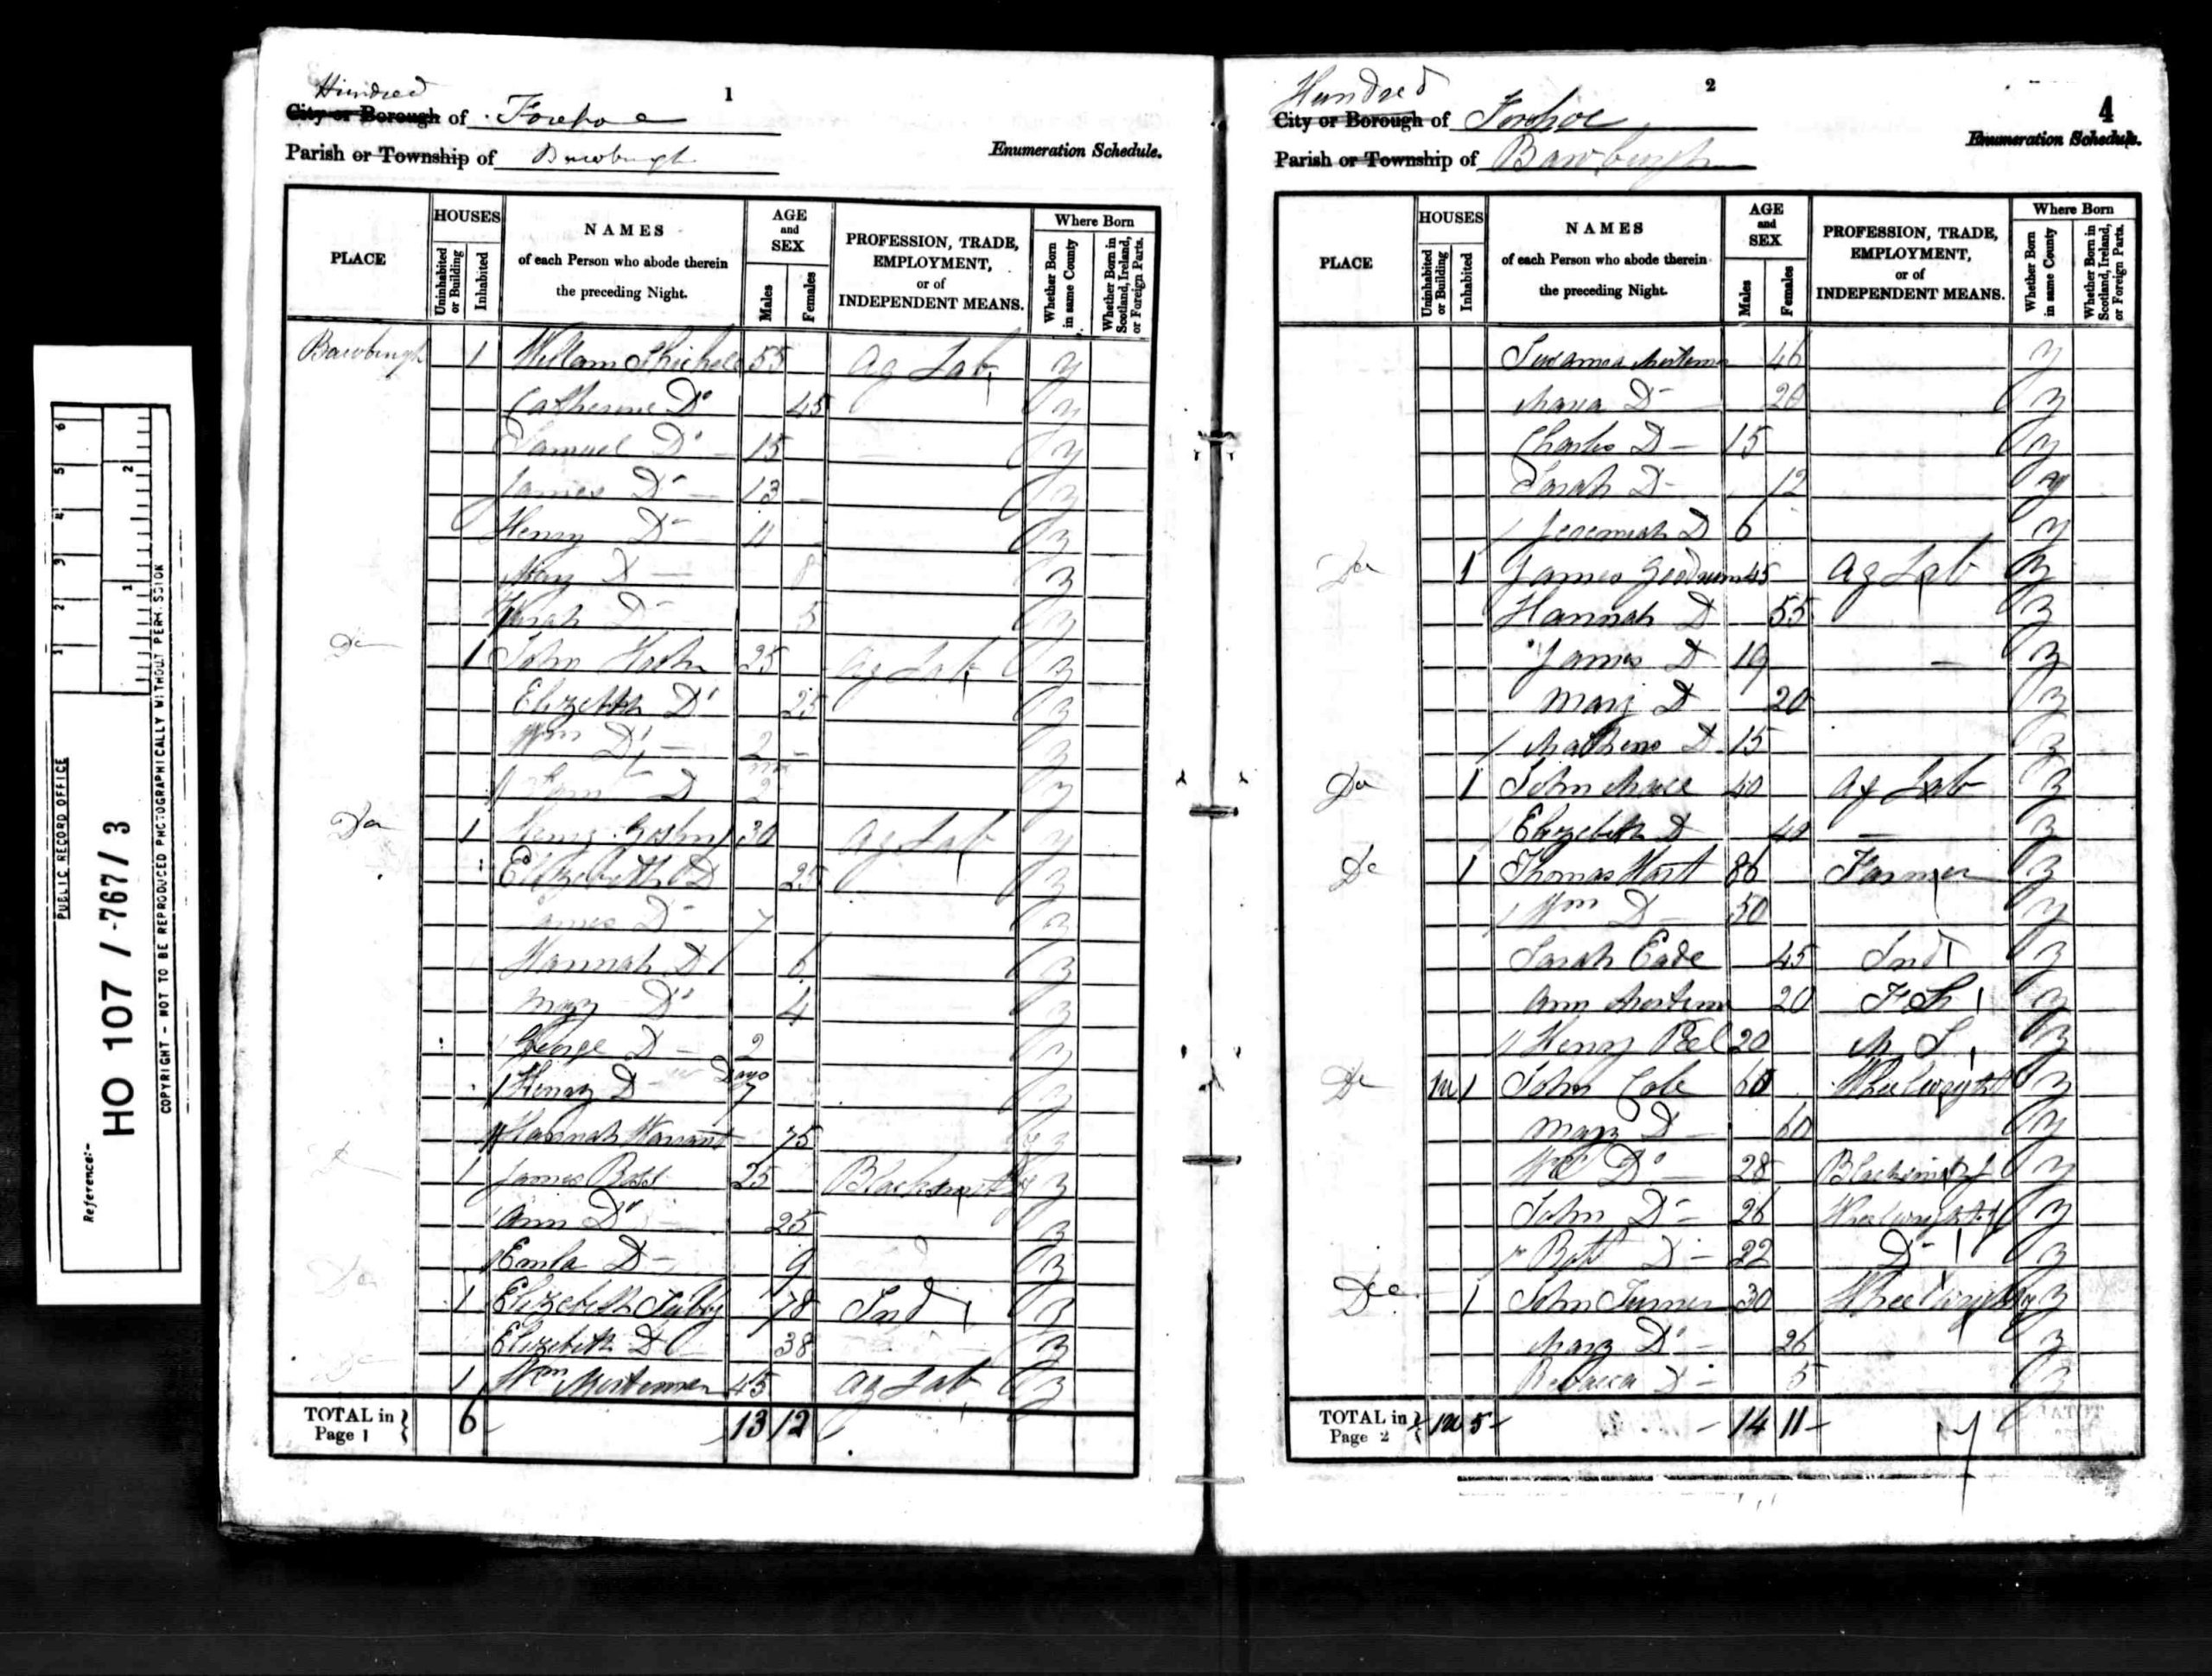 PUBLIC RECORD OFFICE
Reference:-
HO 107 / 767 / 3
COPYRIGHT - NOT TO BE REPRODUCED PHOTOGRAPHICALLY WITHOUT PERMISSION
1
Hundred
City or Borough of Forehoe
Parish or Township of Bawburgh
Enumeration Schedule.
PLACE
HOUSES
Uninhabited or Building
Inhabited
NAMES
of each Person who abode therein
the preceding Night.
AGE and SEX
Males
Females
PROFESSION, TRADE, EMPLOYMENT, or of INDEPENDENT MEANS.
Where Born
Whether Born in same County
Whether Born in Scotland, Ireland, or Foreign Parts.
Bawburgh 1 William 55 Ag Lab y
Catherine Do 45 y
Samuel Do 15 y
James Do 13 y
Henry Do 11 y
Mary D 8 y
Sarah D 5 y
Do 1 John 25 Ag Lab y
Elizabeth Do 25 y
Wm Do 2 y
D 2 y
Do 1 30 Ag Lab y
Elizabeth D 25 y
James D 7 y
Hannah D 6 y
Mary Do 4 y
George D 2 y
Henry D Days 7 y
Hannah 75 y
1 James 25 Blacksmith y
Ann Do 25 y
D 9 y
Do 1 Elizabeth Tubby 78 Ind y
Elizabeth D 38 y
1 Wm Mortimer 45 Ag Lab y
TOTAL in Page 1 6 13 12
2
4
Hundred
City or Borough of Forehoe
Parish or Township of Bawburgh
Enumeration Schedule.
PLACE
HOUSES
Uninhabited or Building
Inhabited
NAMES
of each Person who abode therein
the preceding Night.
AGE and SEX
Males
Females
PROFESSION, TRADE, EMPLOYMENT, or of INDEPENDENT MEANS.
Where Born
Whether Born in same County
Whether Born in Scotland, Ireland, or Foreign Parts.
Susanna Mortimer 46 y
Maria D 20 y
Charles D 15 y
Sarah D 12 y
Jeremiah D 6 y
Do 1 James Goodrum 45 Ag Lab y
Hannah D 55 y
James D 19 y
Mary D 20 y
D 15 y
Do 1 John 40 Ag Lab y
Elizabeth D 40 y
Do 1 Thomas Hart 86 Farmer y
Wm D 50 y
Sarah Eade 45 Ind y
Ann Mortimer 20 F S y
Henry Peel 20 M S y
Do 1u 1 John Cole 60 Wheelwright y
Mary D 60 y
Wm Do 28 Blacksmith J y
John D 26 Wheelwright J y
Robt D 22 D y
Do 1 John Turner 30 Wheelwright y
Mary Do 26 y
Rebecca D 5 y
TOTAL in Page 2 1u 5 14 11